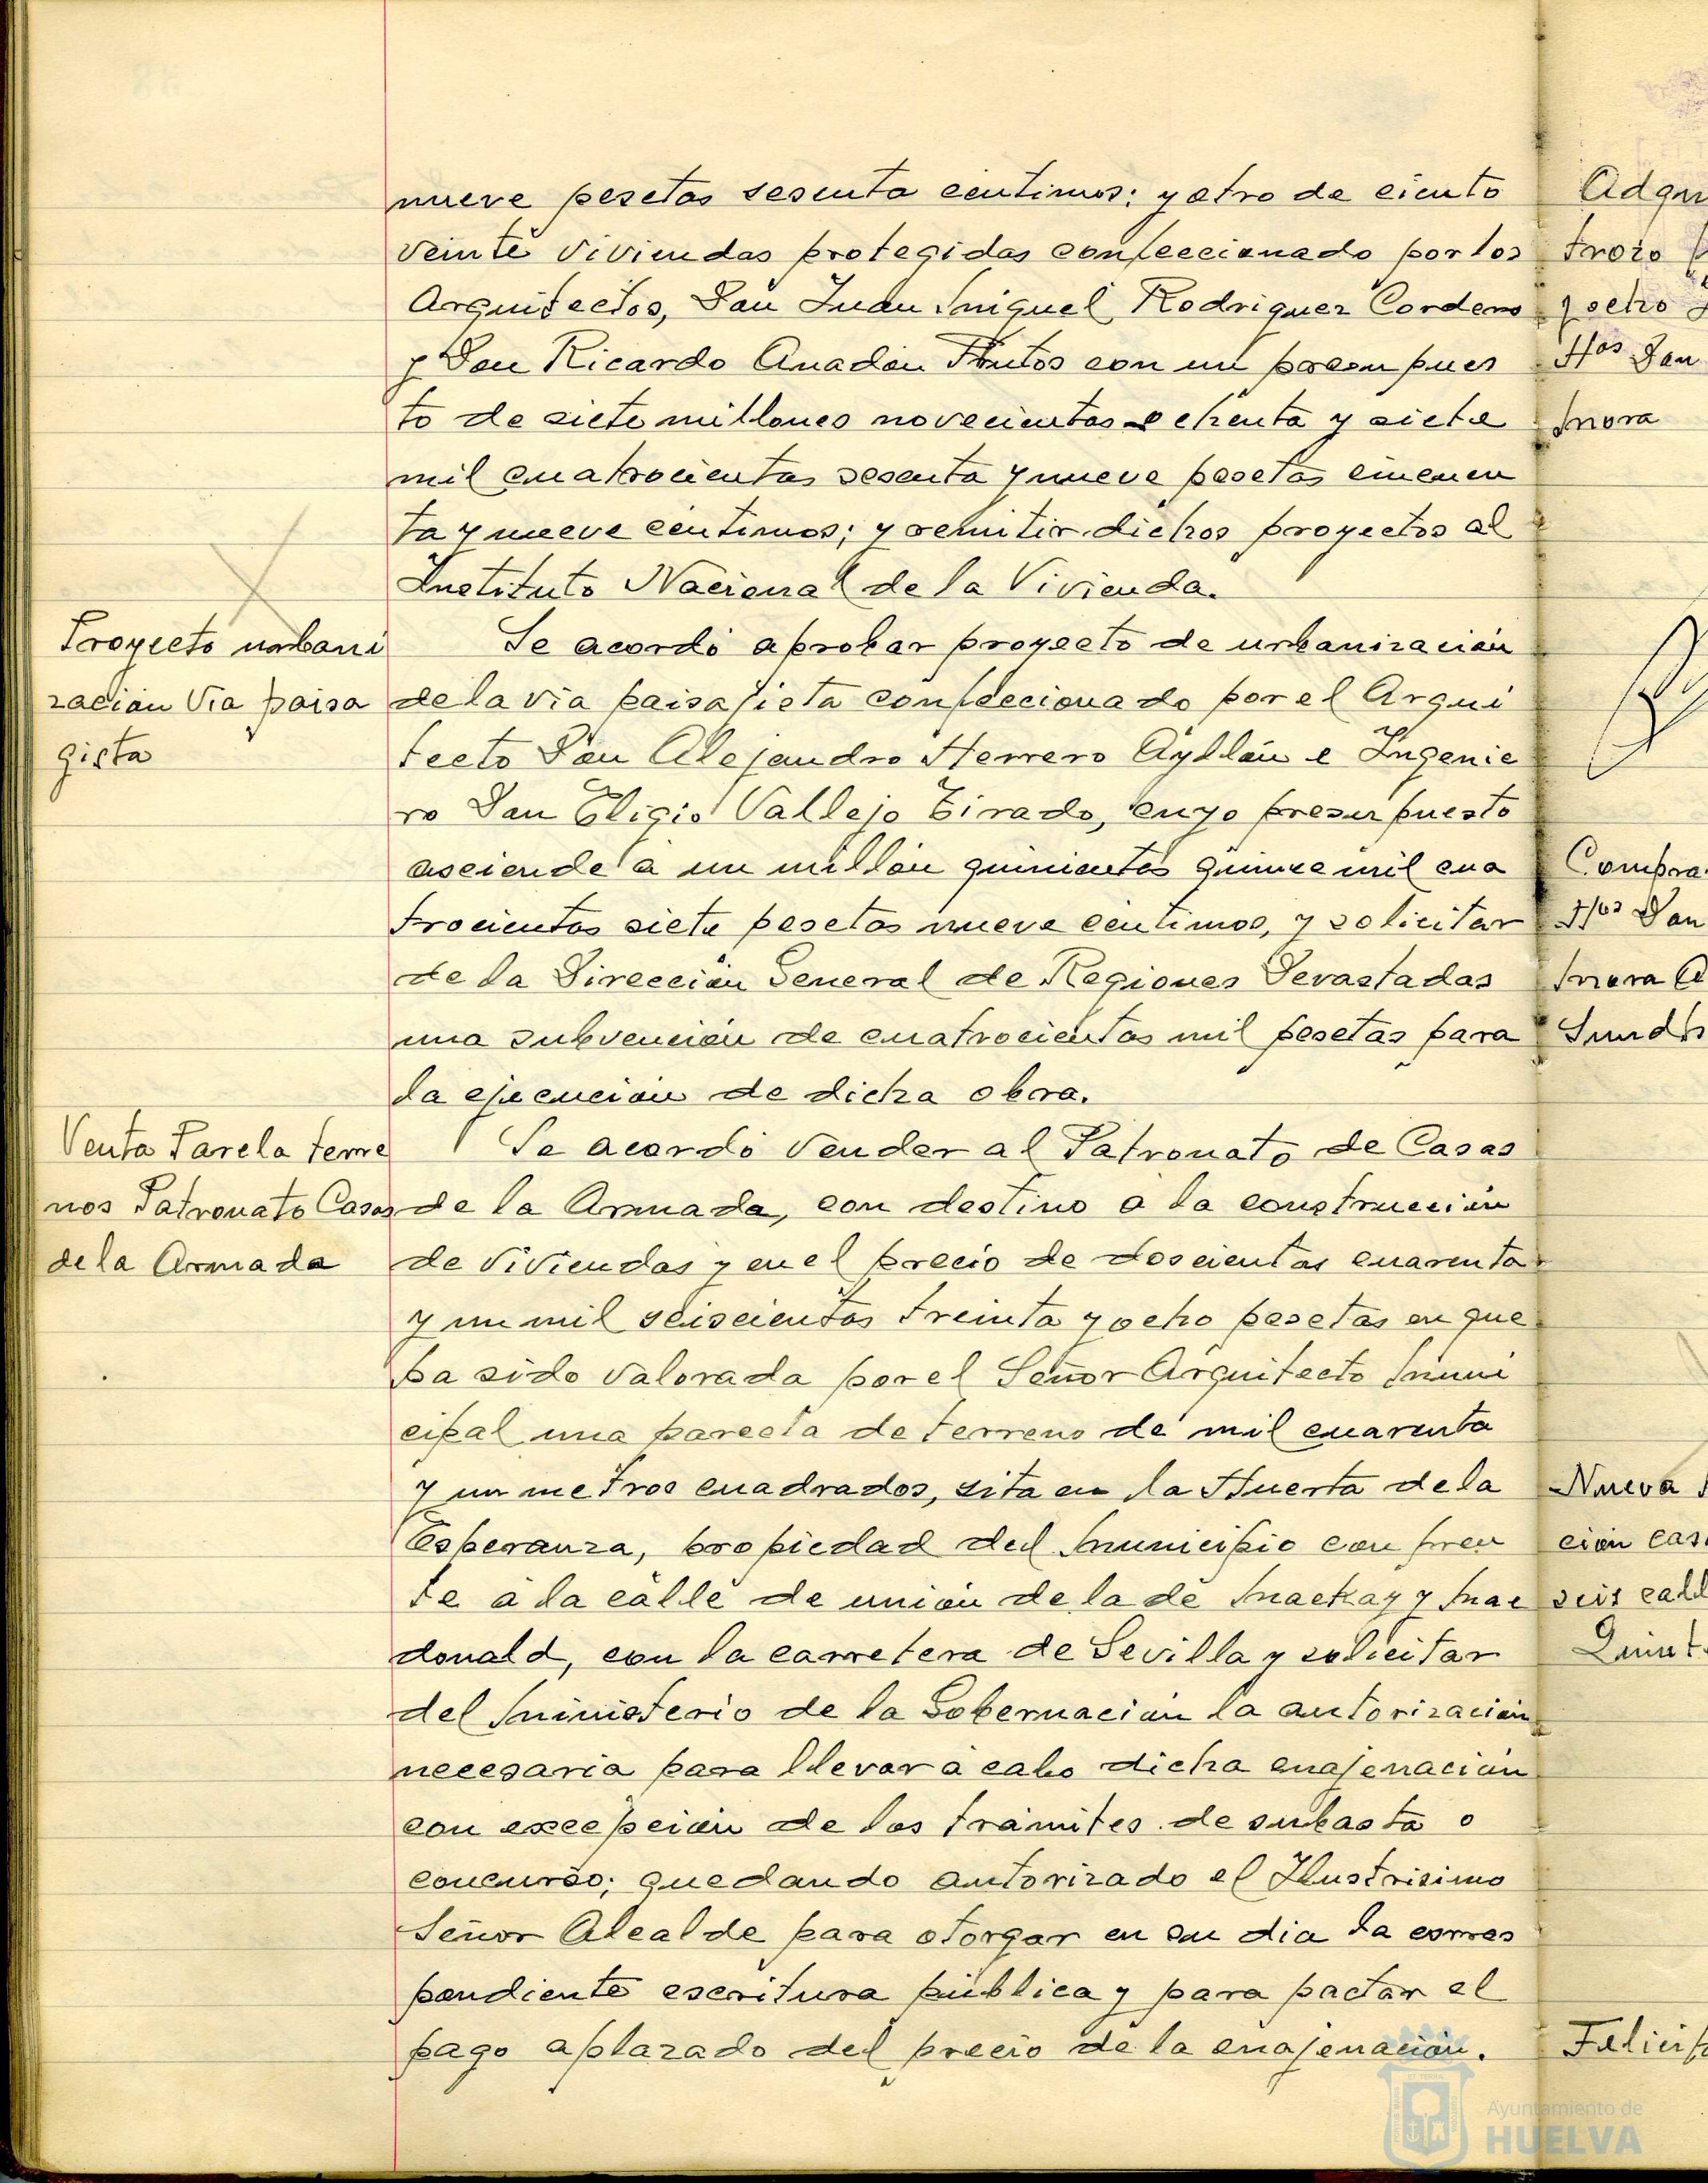 nueve pesetas sesenta centimos; y otro de ciento
veinte viviendas protegidas confeccionado por los
Arquitectos, Don Juan Miguel Rodriguez Cordero
y Don Ricardo Anadón Frutos con un presupues
to de siete millones novecientas ochenta y siete
mil cuatrocientas sesenta y nueve pesetas cincuen
ta y nueve centimos; y remitir dichos proyectos al
Instituto Nacional de la Vivienda.
Proyecto urbani
zación Via paisa
gista
Se acordó aprobar proyecto de urbanización
de la via paisajista confeccionado por el Arqui
tecto Don Alejandro Herrero Ayllón e Ingenie
ro Don Eligio Vallejo Tirado, cuyo presupuesto
asciende a un millón quinientas quince mil cua
trocientas siete pesetas nueve centimos, y solicitar
de la Dirección General de Regiones Devastadas
una subvención de cuatrocientas mil pesetas para
la ejecución de dicha obra.
Venta Parela terre
nos Patronato Casas
de la Armada
Se acordó vender al Patronato de Casas
de la Armada, con destino a la construcción
de viviendas y en el precio de doscientas cuarenta
y un mil seiscientas treinta y ocho pesetas en que
ha sido valorada por el Señor Arquitecto Muni
cipal una parcela de terreno de mil cuarenta
y un metros cuadrados, sita en la Huerta de la
Esperanza, propiedad del Municipio con fren
te a la calle de unión de la de Mackay y Mac
donald, con la carretera de Sevilla y solicitar
del Ministerio de la Gobernación la autorización
necesaria para llevar a cabo dicha enajenación
con excepción de los trámites de subasta o
concurso; quedando autorizado el Ilustrisimo
Señor Alcalde para otorgar en su dia la corres
pondiente escritura pública y para pactar el
pago aplazado del precio de la enajenación.
Adqu
trozo
y ocho
Hos Don
Mora
Compra
Hos Don
Mora A
Nueva
ción cas
seis call
Quint
Felicit
Ayuntamiento de
HUELVA